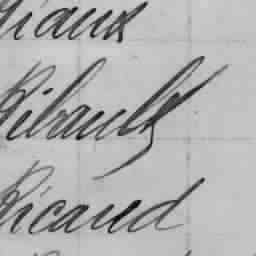 Riaux
Ribault
Ricaud